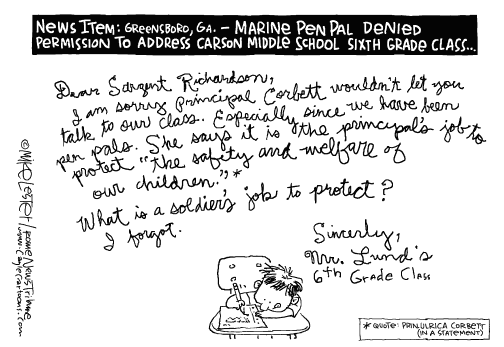 NEWS ITEM: GREENSBORO, GA. - MARINE PEN PAL DENIED
PERMISSION TO ADDRESS CARSON MIDDLE SCHOOL SIXTH GRADE CLASS...
Dear Sargent Richardson,
I am sorry principal Corbett wouldn't let you
talk to our class. Especially since we have been
pen pals. She says it is the principal's job to
protect "the safety and welfare of
our children."*
What is a soldier's job to protect?
I forgot.
Sincerly,
Mr. Lund's
6th Grade Class
* QUOTE: PRIN. ULRICA CORBETT
(IN A STATEMENT)
©MIKE LESTER/ROME NEWS TRIBUNE
www.caglecartoons.com